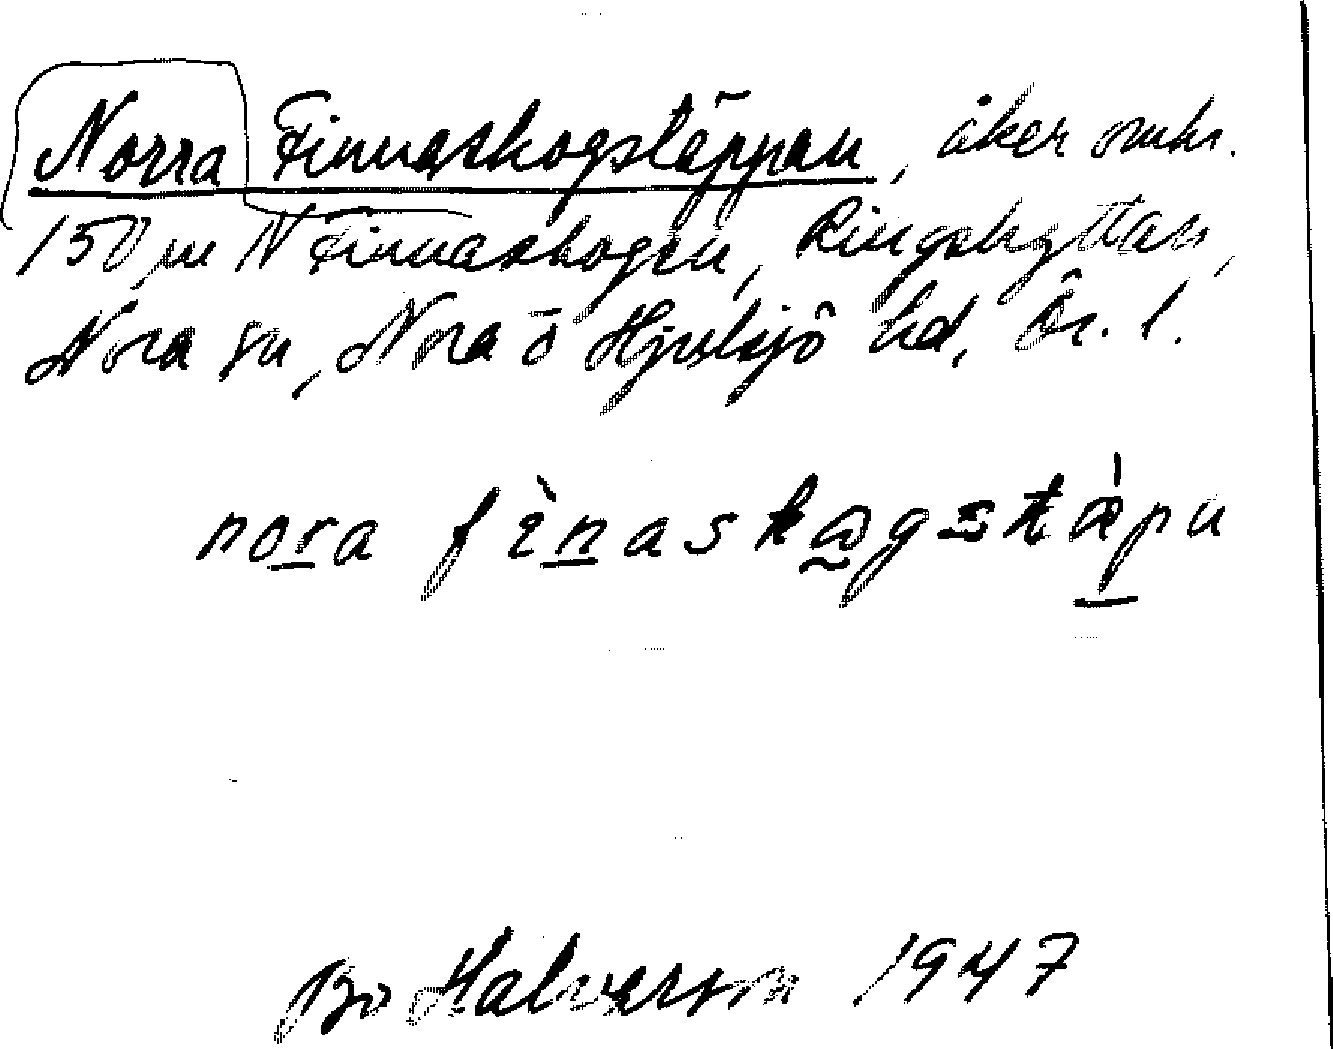 Norra Finnaskogstäppan, åker omkr.
150 m N Finnaskogen, Ringshyttan,
Nora sn, Nora o Hjulsjö hd, Ör. l.
nora fìnaskωgstǽpu
Bo Halvarson 1947